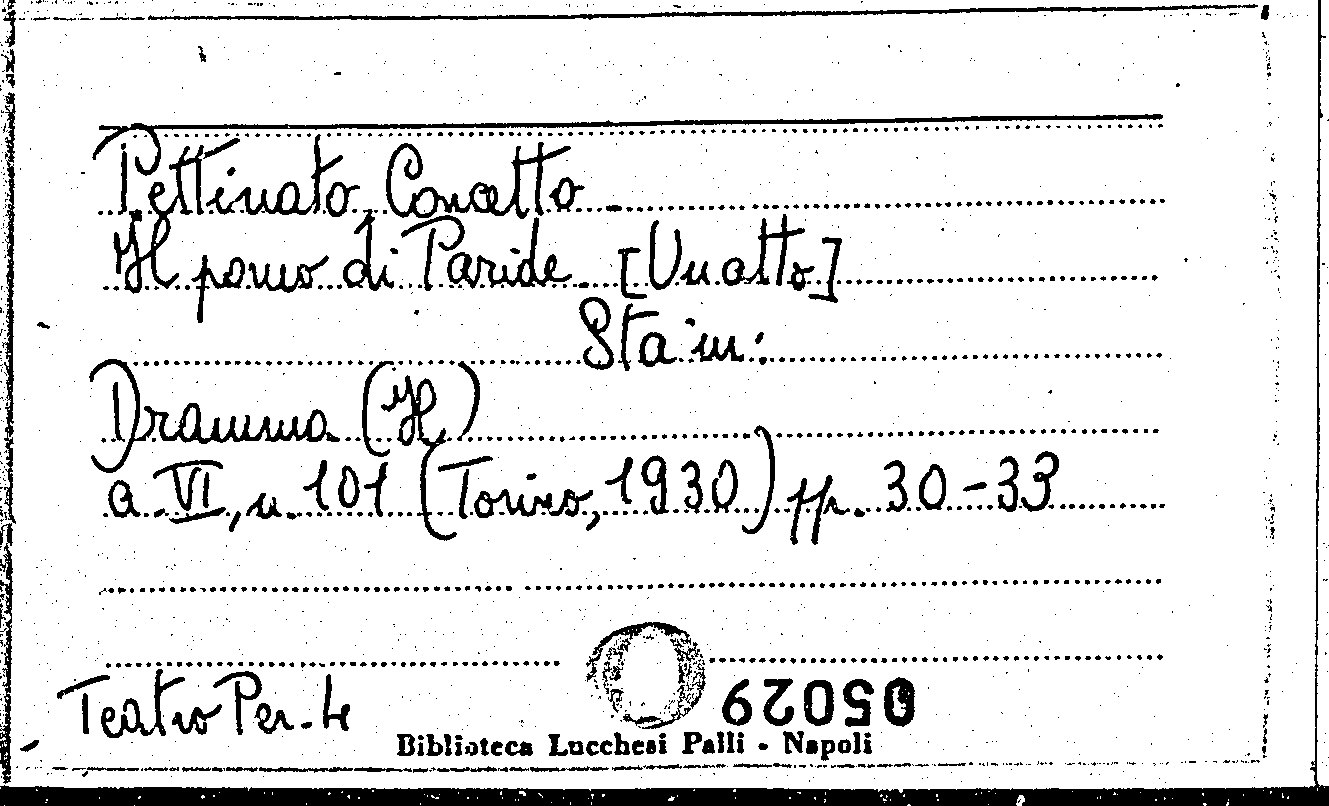 Pettinato, Concetto -
Il pomo di Paride. [Un atto]
Sta in:
Dramma (Il)
a. VI, n. 101 (Torino, 1930) pp. 30-33
Teatro Per. 4
05029
Biblioteca Lucchesi Palli - Napoli